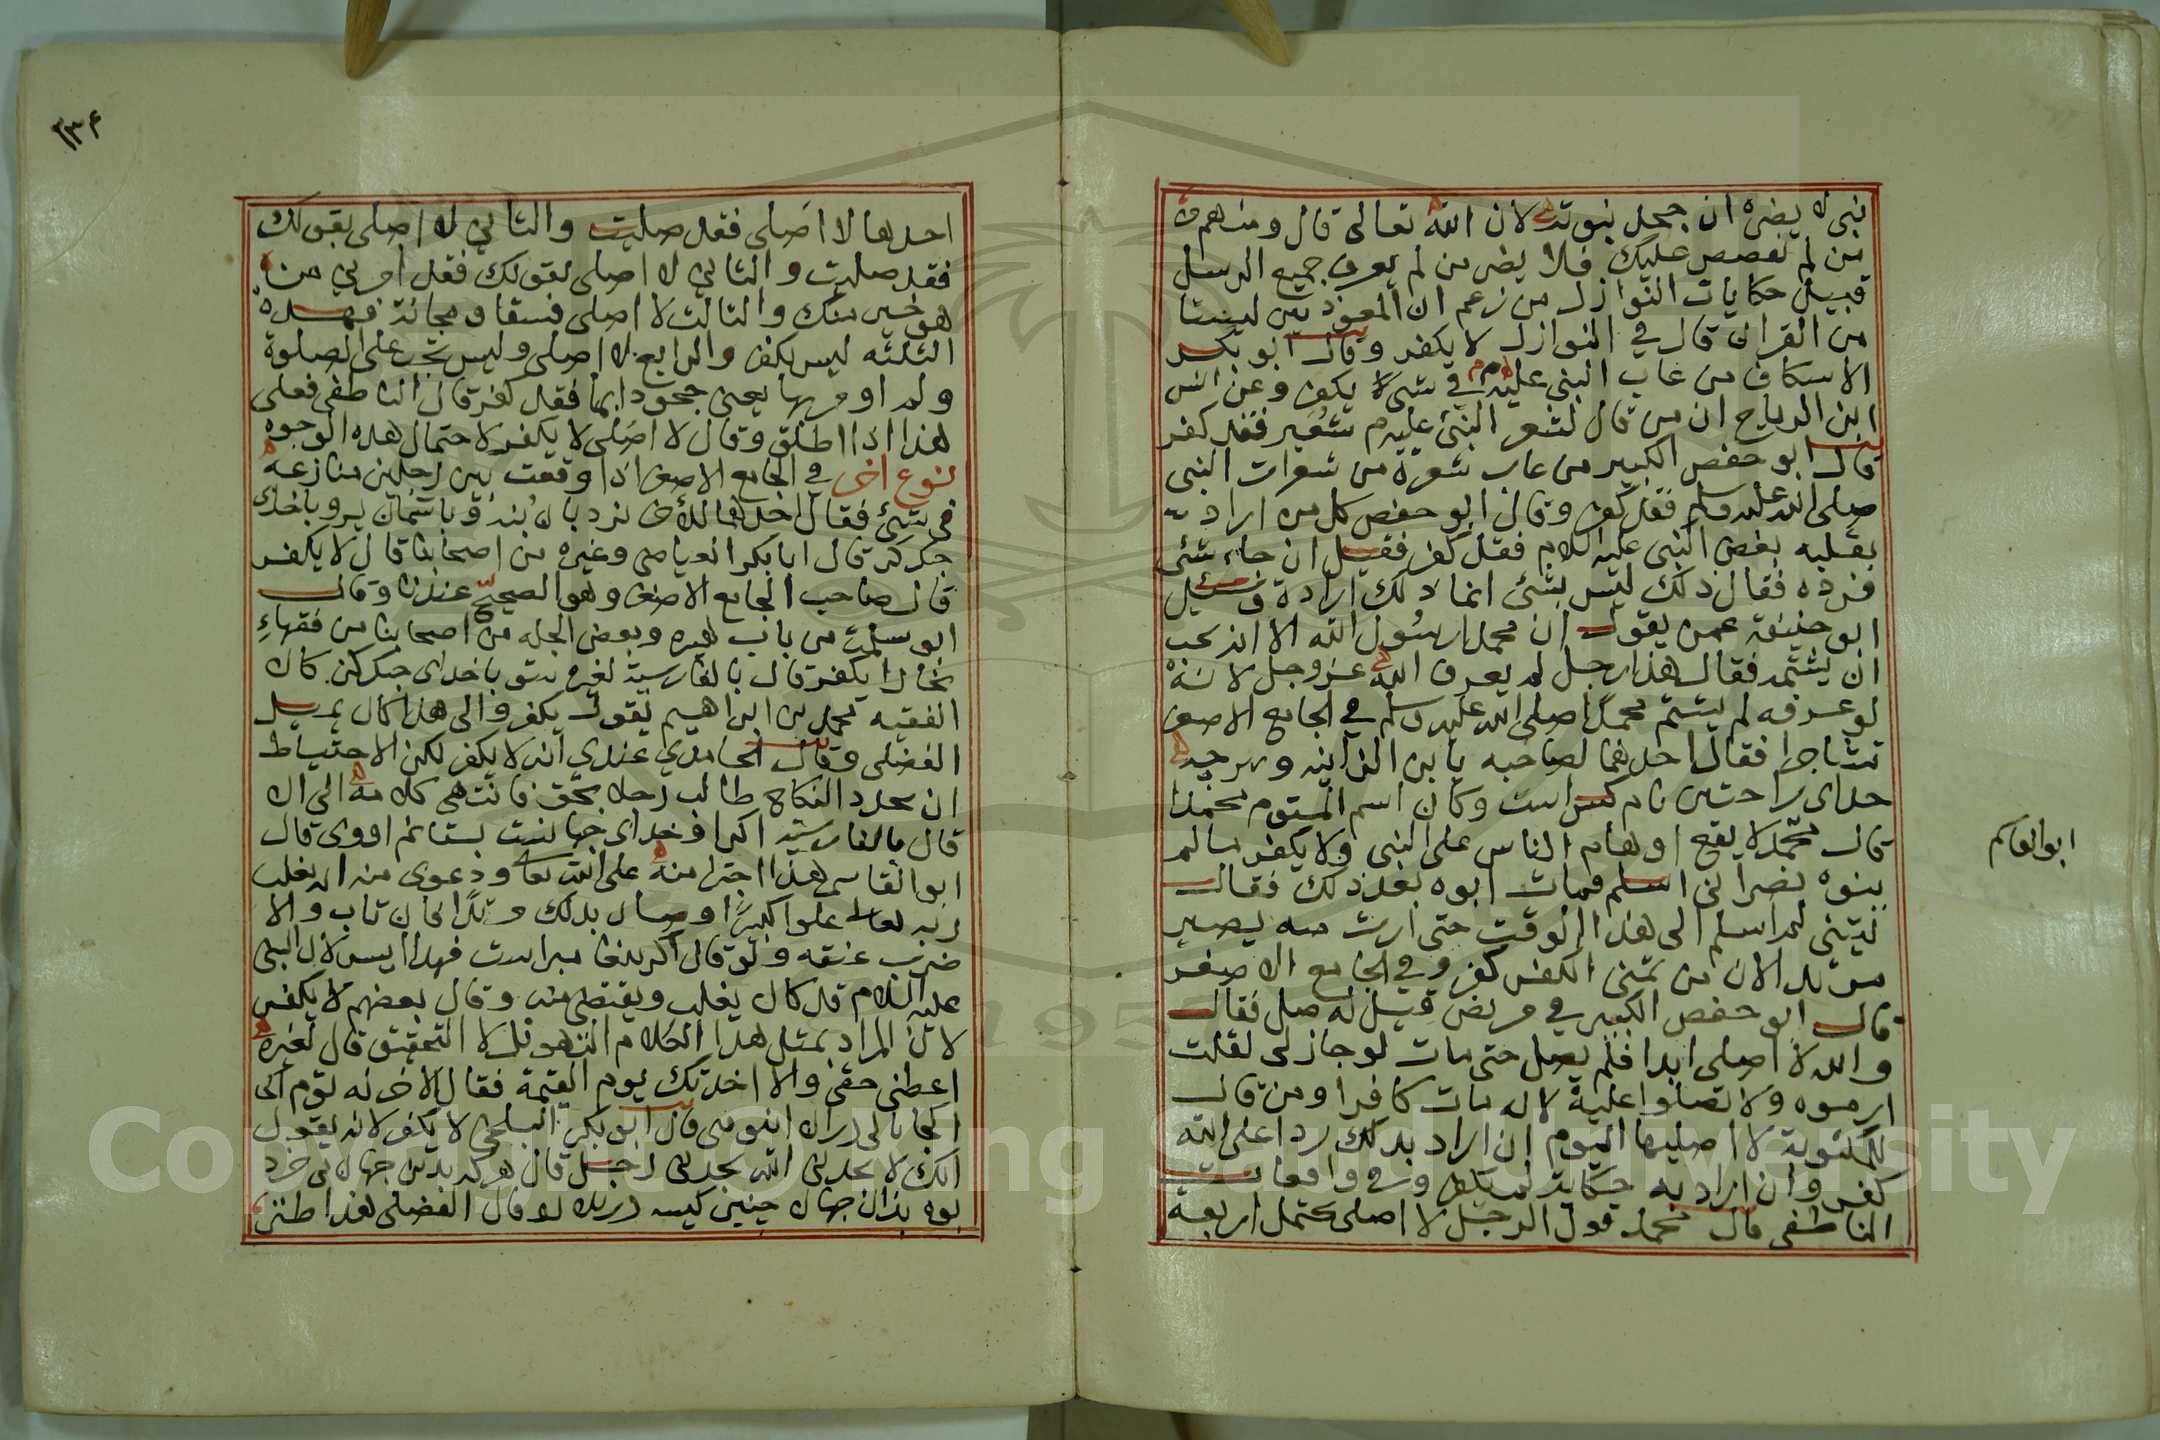 نبى لا يضره ان جحل نبوته لان الله تعالى قال ومنهم
من لم نقصص عليك فلا يضر من لم يعرف جميع الرسل
قبيل حكايات النوازل من زعم ان المعوذتين ليستا
من القران قال في النوازل لا يكفر وقال ابو بكر
الاسكاف من عاب النبى عليه م في شئ لا يكفر وعن انس
ابن الرباح ان من قال لشعر النبى عليه م شعير فقد كفر
قال ابو حفص الكبير من عاب شعرة من شعرات النبى
صلى الله عليه وسلم فقد كفر وقال ابو حفص كل من اراد به
بقلبه بغض النبى عليه السلام فقد كفر فقيل ان جاء شئ
فرده فقال ذلك ليس بشئ انما ذلك ارادة وسئل
ابو حنيفة عمن يقول ان محمدا رسول الله الا انه يحب
ان يشتمه فقال هذا رجل لم يعرف الله عز وجل لانه
لو عرفه لم يشتم محمدا صلى الله عليه وسلم في الجامع الاصغر
تشاجرا فقال احدهما لصاحبه يا بن الزانية وهرچه
خداى را حتين نام كس است وكان اسم المشتوم محمدا
قال محمد لا يقع اوهام الناس على النبى ولا يكفر ما لم
ينوه نصرانى اسلم فمات ابوه بعد ذلك فقال
ليتنى لم اسلم الى هذا الوقت حتى ارث منه يصير
مرتدا لان من تمنى الكفر كفر وفي الجامع الاصغر
قال ابو حفص الكبير في مريض قيل له صل فقال
والله لا اصلى ابدا فلم يصل حتى مات لو جاز لى لقلت
ارموه ولا تصلوا عليه لانه مات كافرا ومن قال
للمكتوبة لا اصليها اليوم ان اراد بذلك ردا على الله
كفر وان اراد به حكاية لم يكفر وفي واقعات
الناطفى قال محمد قول الرجل لا اصلى يحتمل اربعة
ابو القاسم
١٣٤
احدها لا اصلى فقد صليت والثاني لا اصلى بقولك
فقد صليت والثاني لا اصلى بقولك فقد امرني من
هو خير منك والثالث لا اصلى فسقا ومجانة فهذه
الثلثه ليس بكفر والرابع لا اصلى وليس تجب على الصلوة
ولم اومر بها يعنى جحودا بها فقد كفر قال الناطفى فعلى
هذا اذا اطلق وقال لا اصلى لا يكفر لاحتمال هذه الوجوه
نوع اخر في الجامع الاصغر اذا وقعت بين رجلين منازعة
في شئ فقال احدهما للاخر نردبان بنه وباسمان برو باخداى
جنك كن قال ابا بكر العياضى وغيره من اصحابنا قال لا يكفر
قال صاحب الجامع الاصغر وهو الصحيح عندنا وقال
ابو سلمة من باب وبعض الجله من اصحابنا من فقهاء
بخارا يكفر قال بالفارسية لغيره بتو باخداى جنك كن كان
الفقيه محمد بن ابراهيم يقول يكفر والى هذا كان يميل
الفضلى وقال الحامدي عندي انه لا يكفر لكن الاحتياط
ان يجدد النكاح طالب رجلا بحق فانتهى كلامه الى ان
قال بالفارسية اكر او خداى جهانست بستانم از وى قال
ابو القاسم هذا اجترا منه على الله تعا ودعوى منه انه يغلب
ربه تعالى علوا كبيرا وصار بذلك مرتدا فان تاب والا
ضرب عنقه ولو قال اكر پيغامبراست فهذا ايسر لان النبى
عليه السلام قد كان يغلب ويقتضى منه وقال بعضهم لا يكفر
لان المراد بمثل هذا الكلام التهويل لا التحقيق قال لغيره
اعطنى حقى والا اخذتك يوم القيمة فقال الاخر نه تو م
قال ابو بكر البلخى لا يكفر لانه يقول
انك لا تجدنى الله يجدنى رجل قال هر كه بدين جهان بى خرد
بود بدان جهان چنين كيسه دريده بود قال الفضلى هذا طنز